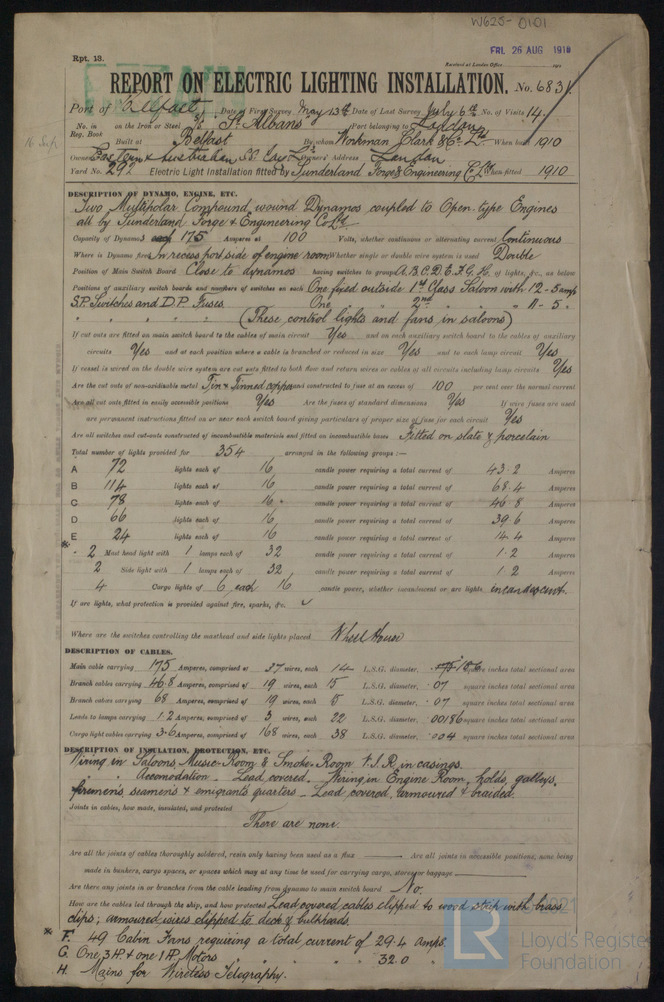 W625-0101
FRI. 26 AUG 1910
Rpt. 13.
Received at London Office
REPORT ON ELECTRIC LIGHTING INSTALLATION. No. 6831
Port of Belfast Date of First Survey May 13th Date of Last Survey July 6th No. of Visits 14.
No. in Reg. Book on the Iron or Steel S/S St. Albans Port belonging to London
Built at Belfast By whom Workman Clark & Co. Ld. When built 1910
Owners Eastern & Australian SS Co Ld. Owners' Address London
Yard No. 292 Electric Light Installation fitted by Sunderland Forge & Engineering C. Ld When fitted 1910
DESCRIPTION OF DYNAMO, ENGINE, ETC.
Two Multipolar Compound wound Dynamos coupled to Open-type Engines
all by Sunderland Forge & Engineering Co Ld.
Capacity of Dynamos each 175 Amperes at 100 Volts, whether continuous or alternating current Continuous
Where is Dynamo fixed In recess port side of engine room Whether single or double wire system is used Double
Position of Main Switch Board Close to dynamos having switches to groups A.B.C.D.E.F.G.H. of lights, &c., as below
Positions of auxiliary switch boards and numbers of switches on each One fixed outside 1st Class Saloon with 12-5 amp
S.P. Switches and D.P. Fuses. One " 2nd " " 11-5 "
(These control lights and fans in saloons)
If cut outs are fitted on main switch board to the cables of main circuit Yes and on each auxiliary switch board to the cables of auxiliary
circuits Yes and at each position where a cable is branched or reduced in size Yes and to each lamp circuit Yes
If vessel is wired on the double wire system are cut outs fitted to both flow and return wires or cables of all circuits including lamp circuits Yes
Are the cut outs of non-oxidizable metal Tin & Tinned copper and constructed to fuse at an excess of 100 per cent over the normal current
Are all cut outs fitted in easily accessible positions Yes Are the fuses of standard dimensions Yes If wire fuses are used
are permanent instructions fitted on or near each switch board giving particulars of proper size of fuse for each circuit Yes
Are all switches and cut-outs constructed of incombustible materials and fitted on incombustible bases Fitted on slate & porcelain
Total number of lights provided for 354 arranged in the following groups :—
A 72 lights each of 16 candle power requiring a total current of 43.2 Amperes
B 114 lights each of 16 candle power requiring a total current of 68.4 Amperes
C 78 lights each of 16 candle power requiring a total current of 46.8 Amperes
D 66 lights each of 16 candle power requiring a total current of 39.6 Amperes
E 24 lights each of 16 candle power requiring a total current of 14.4 Amperes
2 Mast head light with 1 lamps each of 32 candle power requiring a total current of 1.2 Amperes
2 Side light with 1 lamps each of 32 candle power requiring a total current of 1.2 Amperes
4 Cargo lights of 6 each 16 candle power, whether incandescent or arc lights incandescent.
If arc lights, what protection is provided against fire, sparks, &c.
Where are the switches controlling the masthead and side lights placed Wheel House
DESCRIPTION OF CABLES.
Main cable carrying 175 Amperes, comprised of 37 wires, each 14 L.S.G. diameter, square inches total sectional area
Branch cables carrying 46.8 Amperes, comprised of 19 wires, each 15 L.S.G. diameter, .07 square inches total sectional area
Branch cables carrying 68 Amperes, comprised of 19 wires, each 5 L.S.G. diameter, .07 square inches total sectional area
Leads to lamps carrying 1.2 Amperes, comprised of 3 wires, each 22 L.S.G. diameter, .00186 square inches total sectional area
Cargo light cables carrying 3.6 Amperes, comprised of 168 wires, each 38 L.S.G. diameter, .004 square inches total sectional area
DESCRIPTION OF INSULATION, PROTECTION, ETC.
Wiring in Saloons, Music-Room & Smoke-Room V.I.R. in casings.
" " Accomodation - Lead covered. Wiring in Engine Room, holds, galleys,
firemen's, seamen's & emigrants quarters - Lead covered, armoured & braided.
Joints in cables, how made, insulated, and protected
There are none.
Are all the joints of cables thoroughly soldered, resin only having been used as a flux — Are all joints in accessible positions, none being
made in bunkers, cargo spaces, or spaces which may at any time be used for carrying cargo, stores, or baggage —
Are there any joints in or branches from the cable leading from dynamo to main switch board No.
How are the cables led through the ship, and how protected Lead covered cables clipped to wood strip with brass
clips; armoured wires clipped to deck & bulkheads.
F. 49 Cabin Fans requiring a total current of 29.4 amps.
G. One 3 HP. & one 1 HP. Motors " " " " 32.0 "
H. Mains for Wireless Telegraphy.
© 2021
LR
Lloyd's Register
Foundation